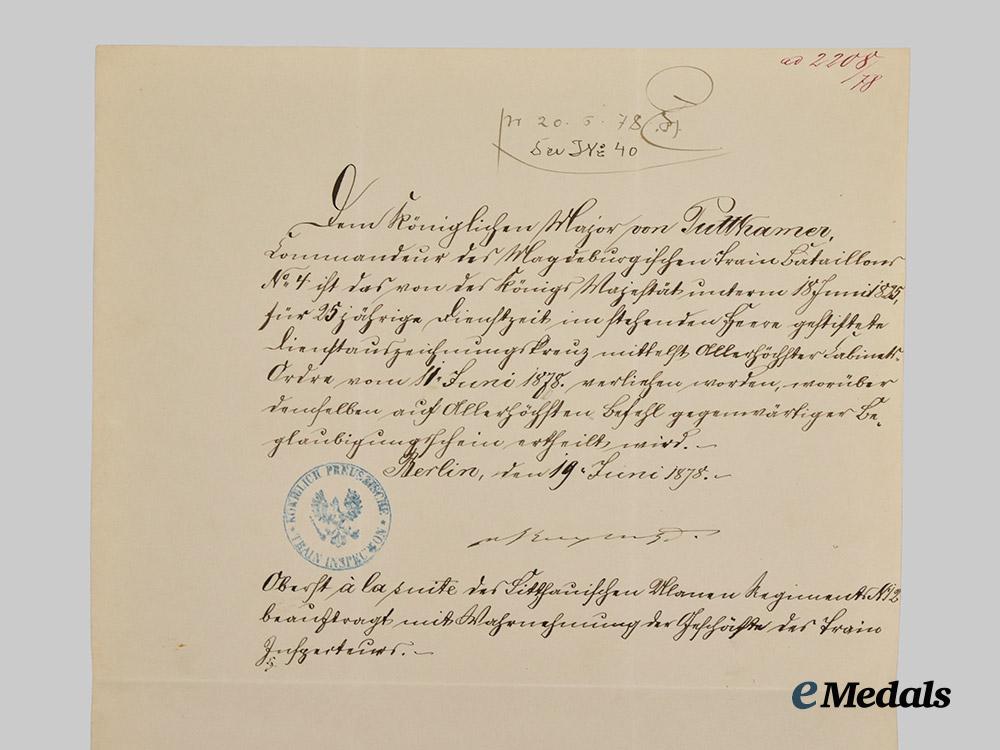 ad 2208/78
pr 20. 6. 78
Dem Königlichen Major von Puttkamer,
Commandeur des Magdeburgischen Train Bataillons
No. 4 ist das von des Königs Majestät unterm 18 Juni 1825,
für 25 jährige Dienstzeit im stehenden Heere gestiftete
Dienstauszeichnungskreuz mittelst Allerhöchster Cabinets-
Ordre vom 11. Juni 1878. verliehen worden, worüber
demselben auf Allerhöchsten Befehl gegenwärtiger Be-
glaubigungsschein ertheilt wird.-
Berlin, den 19. Juni 1878.-
KÖNIGLICH PREUSSISCHE
TRAIN INSPECTION
Oberst à la suite des Litthauischen Ulanen Regiments No 12
beauftragt mit Wahrnehmung der Geschäfte des Train
Inspecteurs.-
eMedals